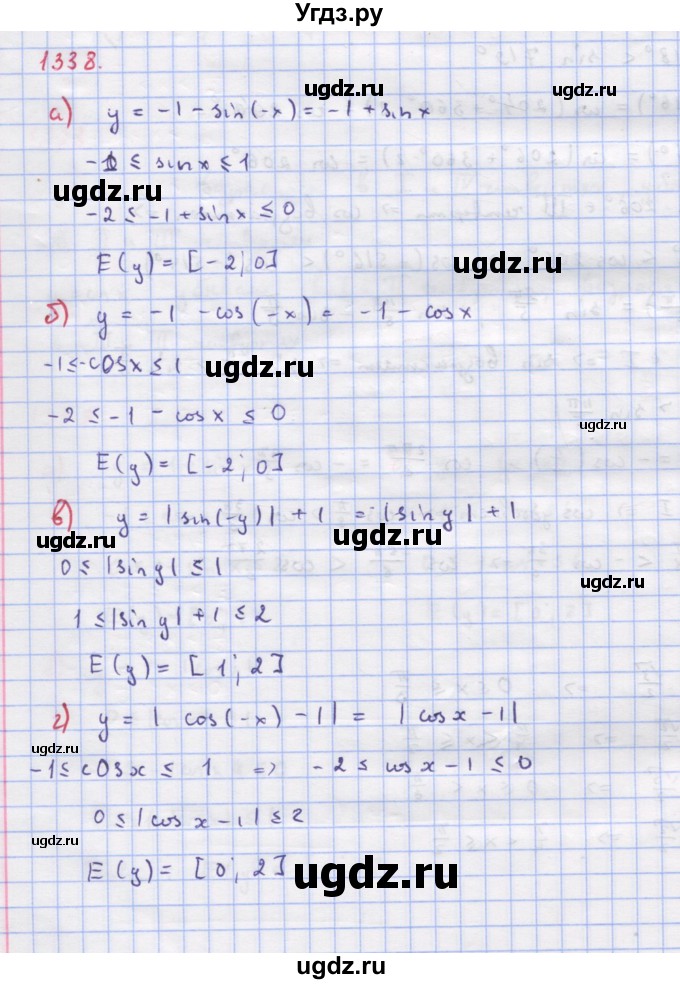 Угдз.ру
1338.
а) y = -1 - sin(-x) = -1 + sin x
-1 ≤ sin x ≤ 1
ugdz.ru
ugdz.ru
-2 ≤ -1 + sin x ≤ 0
ugdz.ru
E(y) = [-2; 0]
ugdz.ru
б) y = -1 - cos(-x) = -1 - cos x
ugdz.ru
-1 ≤ -cos x ≤ 1
ugdz.ru
-2 ≤ -1 - cos x ≤ 0
ugdz.ru
E(y) = [-2; 0]
в) y = |sin(-y)| + 1 = |sin y| + 1
ugdz.ru
ugdz.ru
0 ≤ |sin y| ≤ 1
ugdz.ru
1 ≤ |sin y| + 1 ≤ 2
E(y) = [1; 2]
г) y = |cos(-x) - 1| = |cos x - 1|
ugdz.ru
-1 ≤ cos x ≤ 1 => -2 ≤ cos x - 1 ≤ 0
0 ≤ |cos x - 1| ≤ 2
ugdz.ru
E(y) = [0; 2]
ugdz.ru
ugdz.ru